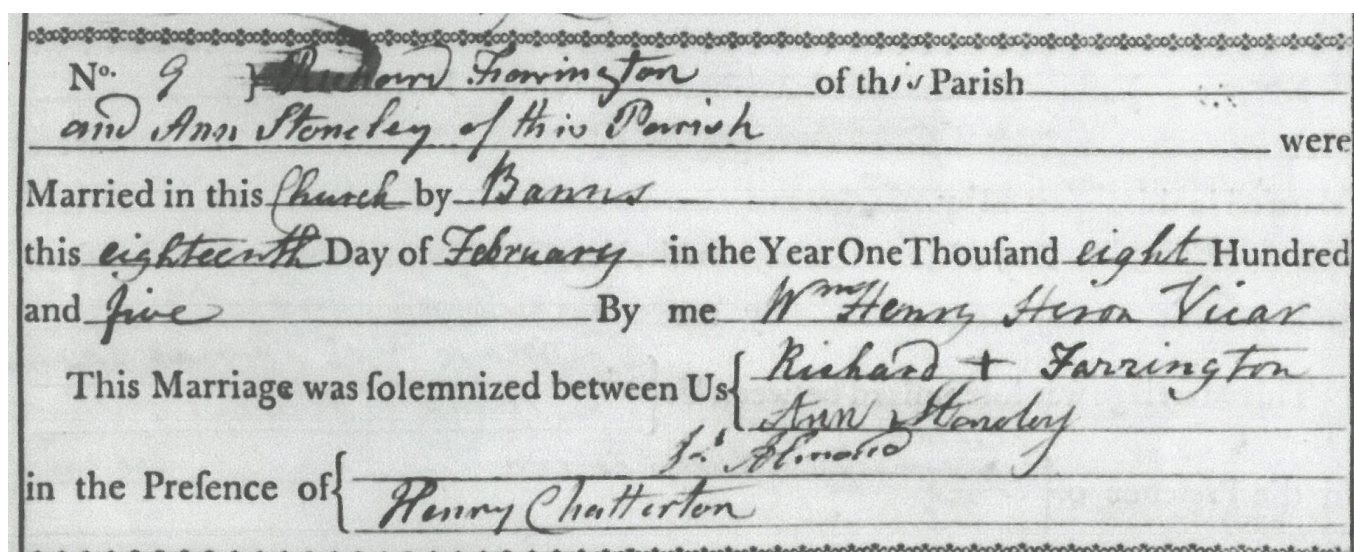 No. 9 } Richard Farrington of this Parish
and Ann Stoneley of this Parish were
Married in this Church by Banns
this eighteenth Day of February in the Year One Thouſand eight Hundred
and five By me Wm Henry Heron Vicar
This Marriage was ſolemnized between Us { Richard + Farrington
Ann Stoneley
Almond
in the Preſence of {
Henry Chatterton